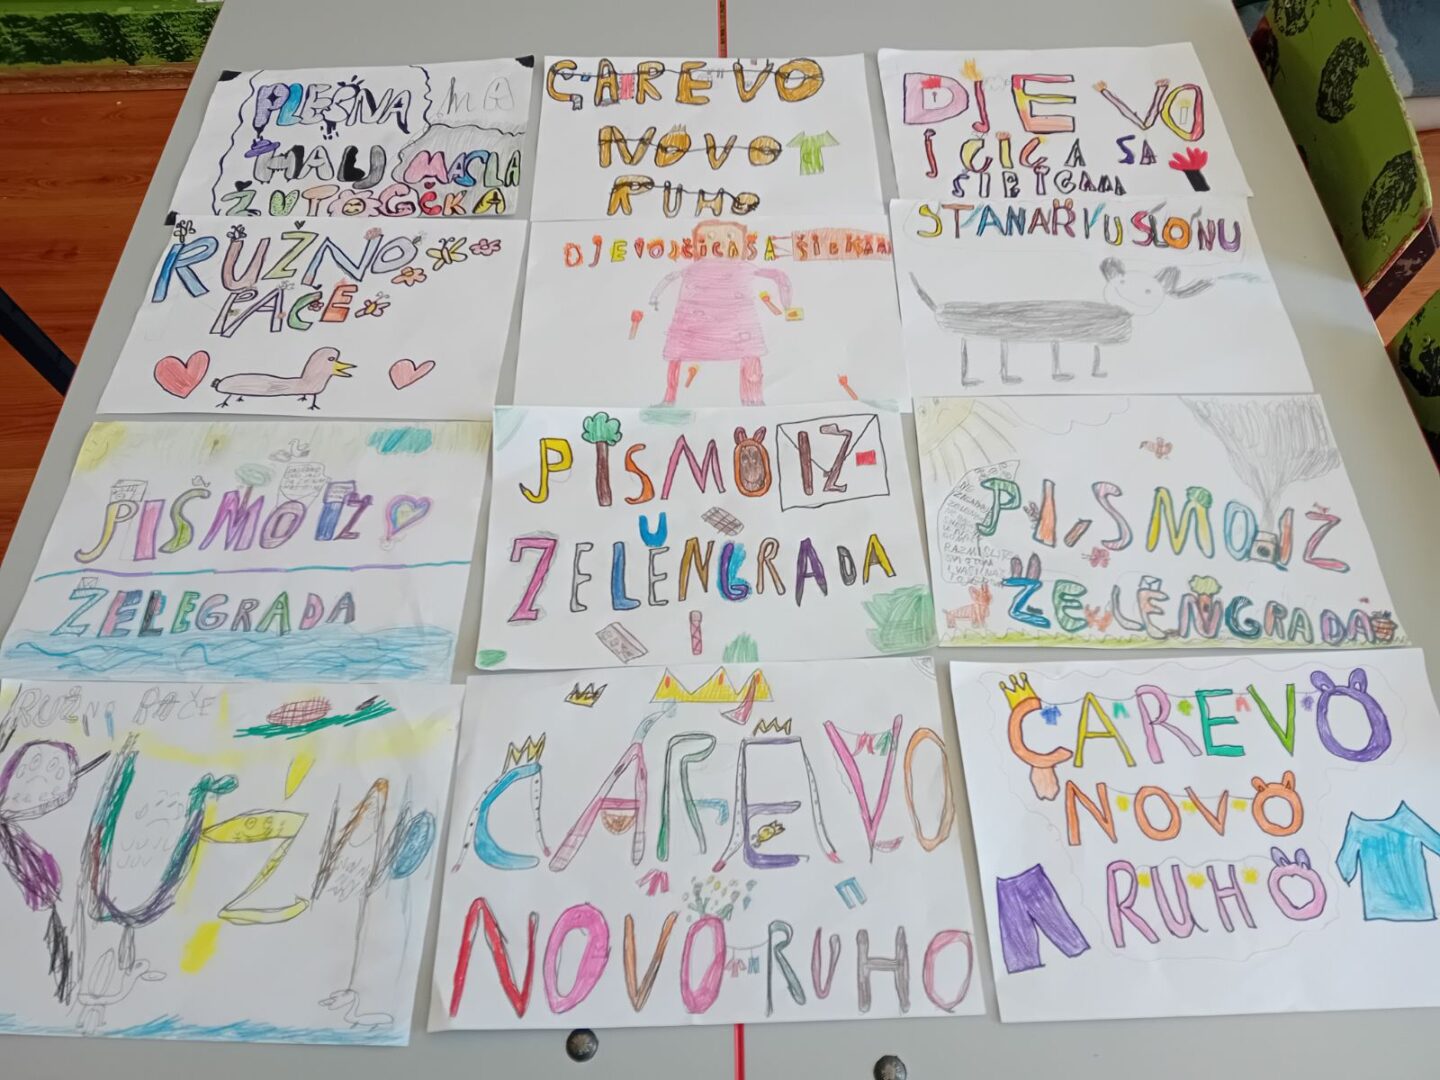 PLEŠNA
MALI MASLA
ŽUTOGČKA
CAREVO
NOVO
RUHO
DJEVO
JČICA SA
ŠIBICAMA
RUŽNO
PAČE
DJEVOJČICA SA ŠIBICAMA
STANAR U SLONU
PISMO IZ
ZELEGRADA
PISMO IZ
ZELENGRADA
PISMO IZ
ZELENGRADA
RUŽNO PAČE
RUŽNO
CAREVO
NOVO RUHO
CAREVO
NOVO
RUHO